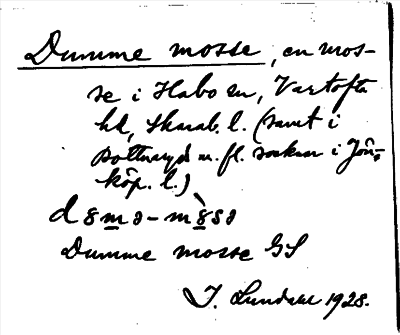 Dumme mosse, en mos-
se i Habo sn, Vartofta
hd, Skarab. l. (samt i
Bottnaryd m. fl. socknar i Jön-
köp. l.)
Dumme mosse GS
J. Lundahl 1928.